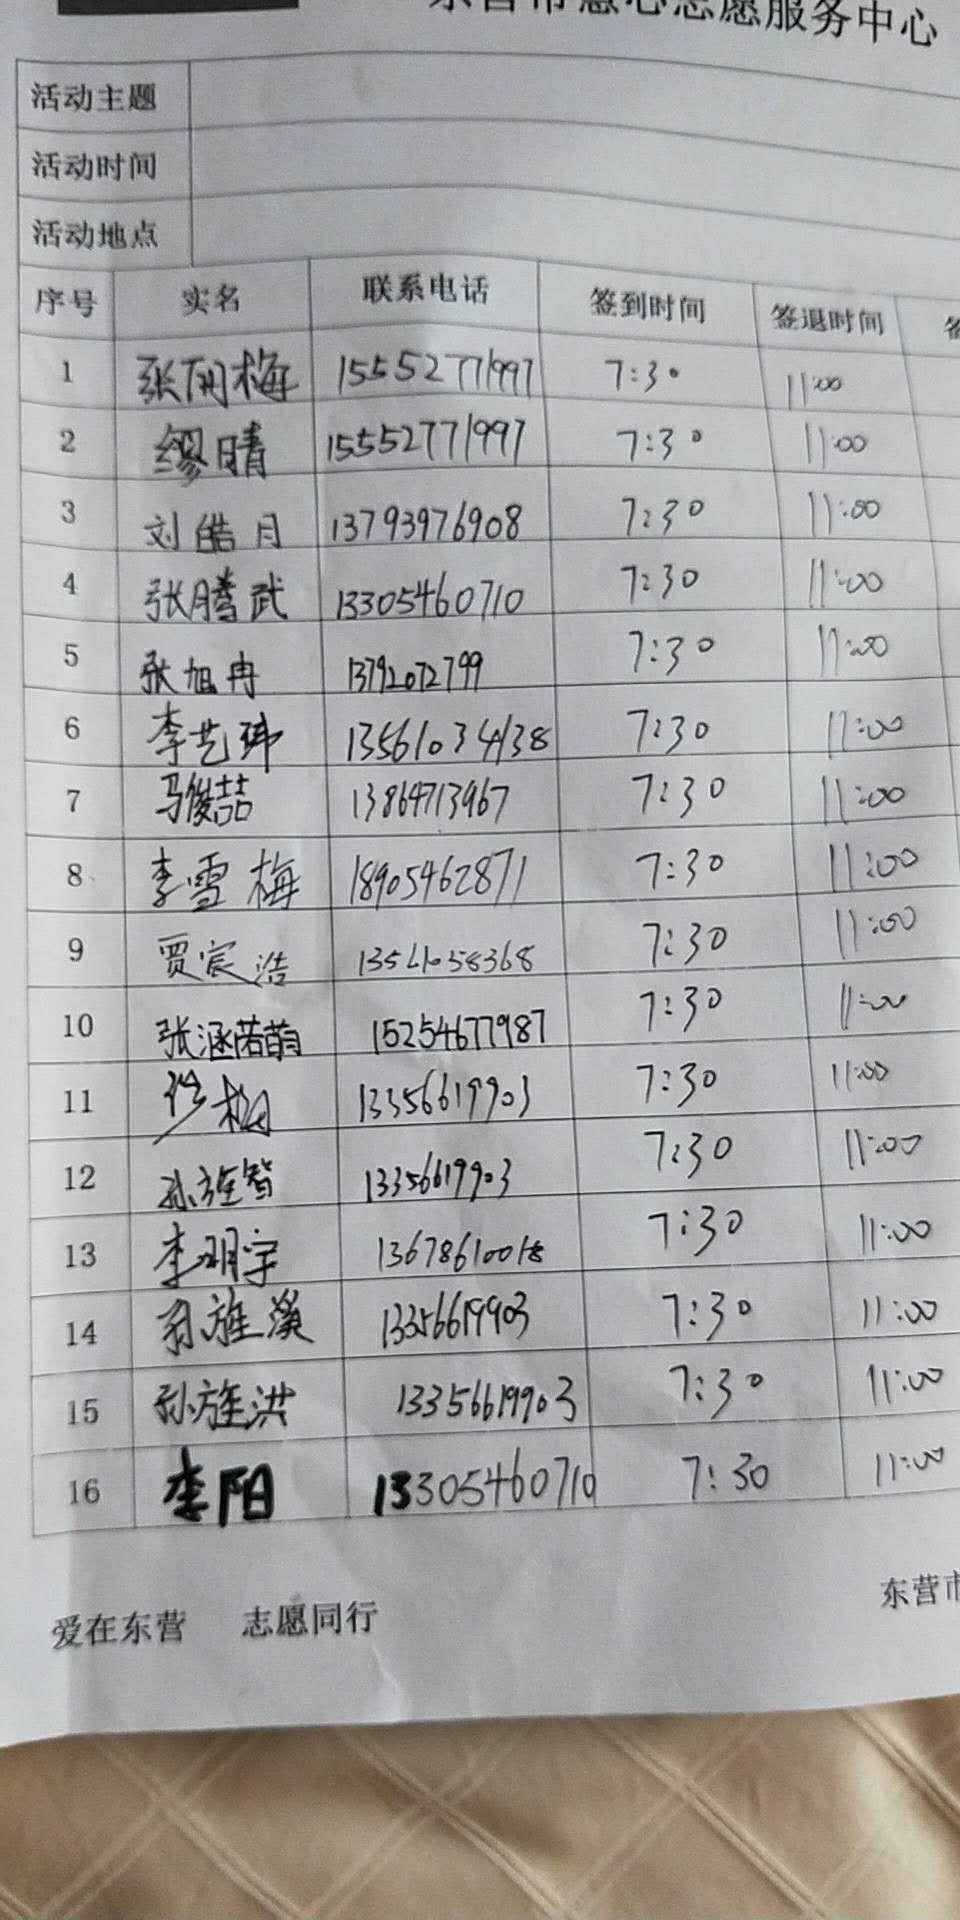 东营市慧心志愿服务中心
活动主题
活动时间
活动地点
序号 实名 联系电话 签到时间 签退时间
1 张丽梅 15552771997 7:30 11:00
2 缪晴 15552771997 7:30 11:00
3 刘皓月 13793976908 7:30 11:00
4 张腾武 13305460710 7:30 11:00
5 张旭冉 13792072799 7:30 11:00
6 李艺玮 13561034138 7:30 11:00
7 马俊喆 13864713967 7:30 11:00
8 李雪梅 18905462871 7:30 11:00
9 贾宸浩 13561058368 7:30 11:00
10 张涵若萌 15254677987 7:30 11:00
11 13356619903 7:30 11:00
12 孙旌智 13356619903 7:30 11:00
13 李明宇 13678610018 7:30 11:00
14 旌溪 13356619903 7:30 11:00
15 孙旌洪 13356619903 7:30 11:00
16 李阳 13305460710 7:30 11:00
爱在东营 志愿同行 东营市